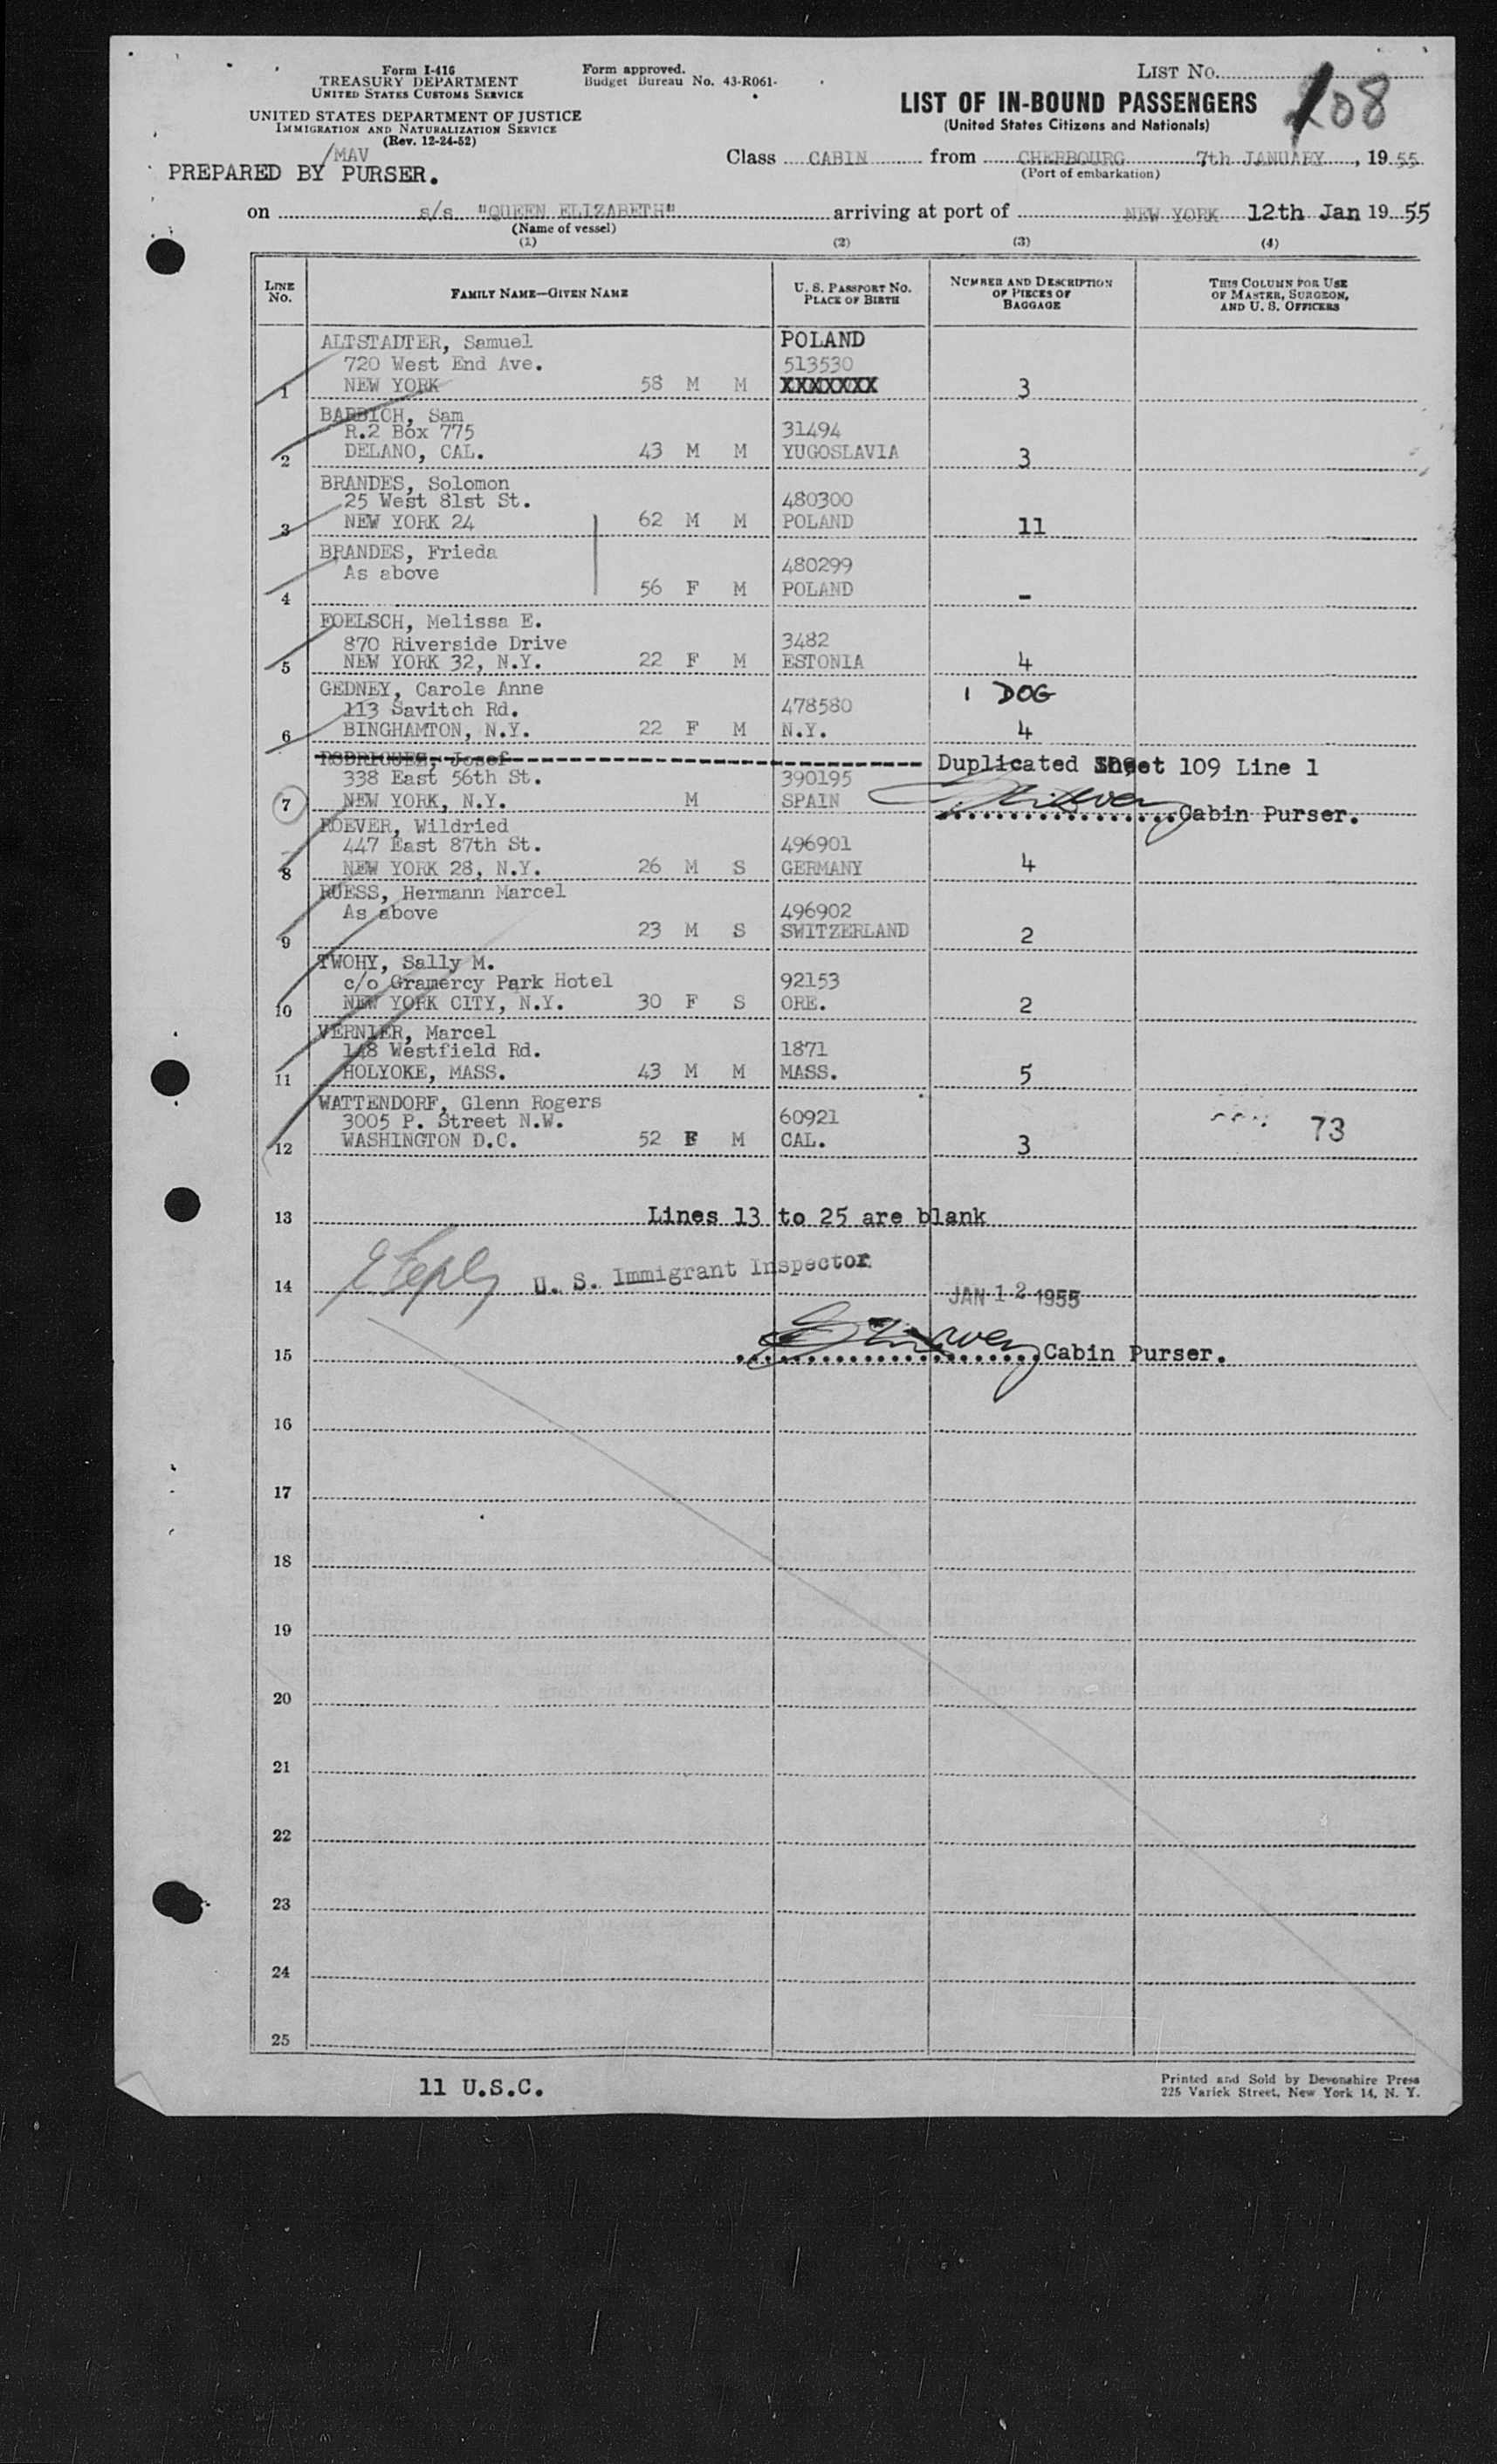 Form I-416
TREASURY DEPARTMENT
UNITED STATES CUSTOMS SERVICE
UNITED STATES DEPARTMENT OF JUSTICE
IMMIGRATION AND NATURALIZATION SERVICE
(Rev. 12-24-52)
/MAV
PREPARED BY PURSER.
Form approved.
Budget Bureau No. 43-R061-
LIST No. 108
LIST OF IN-BOUND PASSENGERS
(United States Citizens and Nationals)
Class CABIN from CHERBOURG 7th JANUARY, 1955
(Port of embarkation)
on s/s "QUEEN ELIZABETH" arriving at port of NEW YORK 12th Jan 1955
(Name of vessel)
(1) (2) (3) (4)
LINE No. FAMILY NAME—GIVEN NAME U. S. PASSPORT No. PLACE OF BIRTH NUMBER AND DESCRIPTION OF PIECES OF BAGGAGE THIS COLUMN FOR USE OF MASTER, SURGEON, AND U. S. OFFICERS
ALTSTADTER, Samuel POLAND
720 West End Ave. 513530
1 NEW YORK 58 M M XXXXXXX 3
BARBICH, Sam
R.2 Box 775 31494
2 DELANO, CAL. 43 M M YUGOSLAVIA 3
BRANDES, Solomon
25 West 81st St. 480300
3 NEW YORK 24 62 M M POLAND 11
BRANDES, Frieda
As above 480299
4 56 F M POLAND -
FOELSCH, Melissa E.
870 Riverside Drive 3482
5 NEW YORK 32, N.Y. 22 F M ESTONIA 4
GEDNEY, Carole Anne 1 DOG
113 Savitch Rd. 478580
6 BINGHAMTON, N.Y. 22 F M N.Y. 4
RODRIGUEZ, Josef Duplicated Sheet 109 Line 1
338 East 56th St. 390195
7 NEW YORK, N.Y. M SPAIN Cabin Purser.
ROEVER, Wildried
447 East 87th St. 496901
8 NEW YORK 28, N.Y. 26 M S GERMANY 4
RUESS, Hermann Marcel
As above 496902
9 23 M S SWITZERLAND 2
TWOHY, Sally M.
c/o Gramercy Park Hotel 92153
10 NEW YORK CITY, N.Y. 30 F S ORE. 2
VERNIER, Marcel
148 Westfield Rd. 1871
11 HOLYOKE, MASS. 43 M M MASS. 5
WATTENDORF, Glenn Rogers
3005 P. Street N.W. 60921
12 WASHINGTON D.C. 52 F M CAL. 3 73
13 Lines 13 to 25 are blank
14 U. S. Immigrant Inspector JAN 12 1955
15 Cabin Purser.
16
17
18
19
20
21
22
23
24
25
11 U.S.C.
Printed and Sold by Devonshire Press
225 Varick Street, New York 14, N. Y.